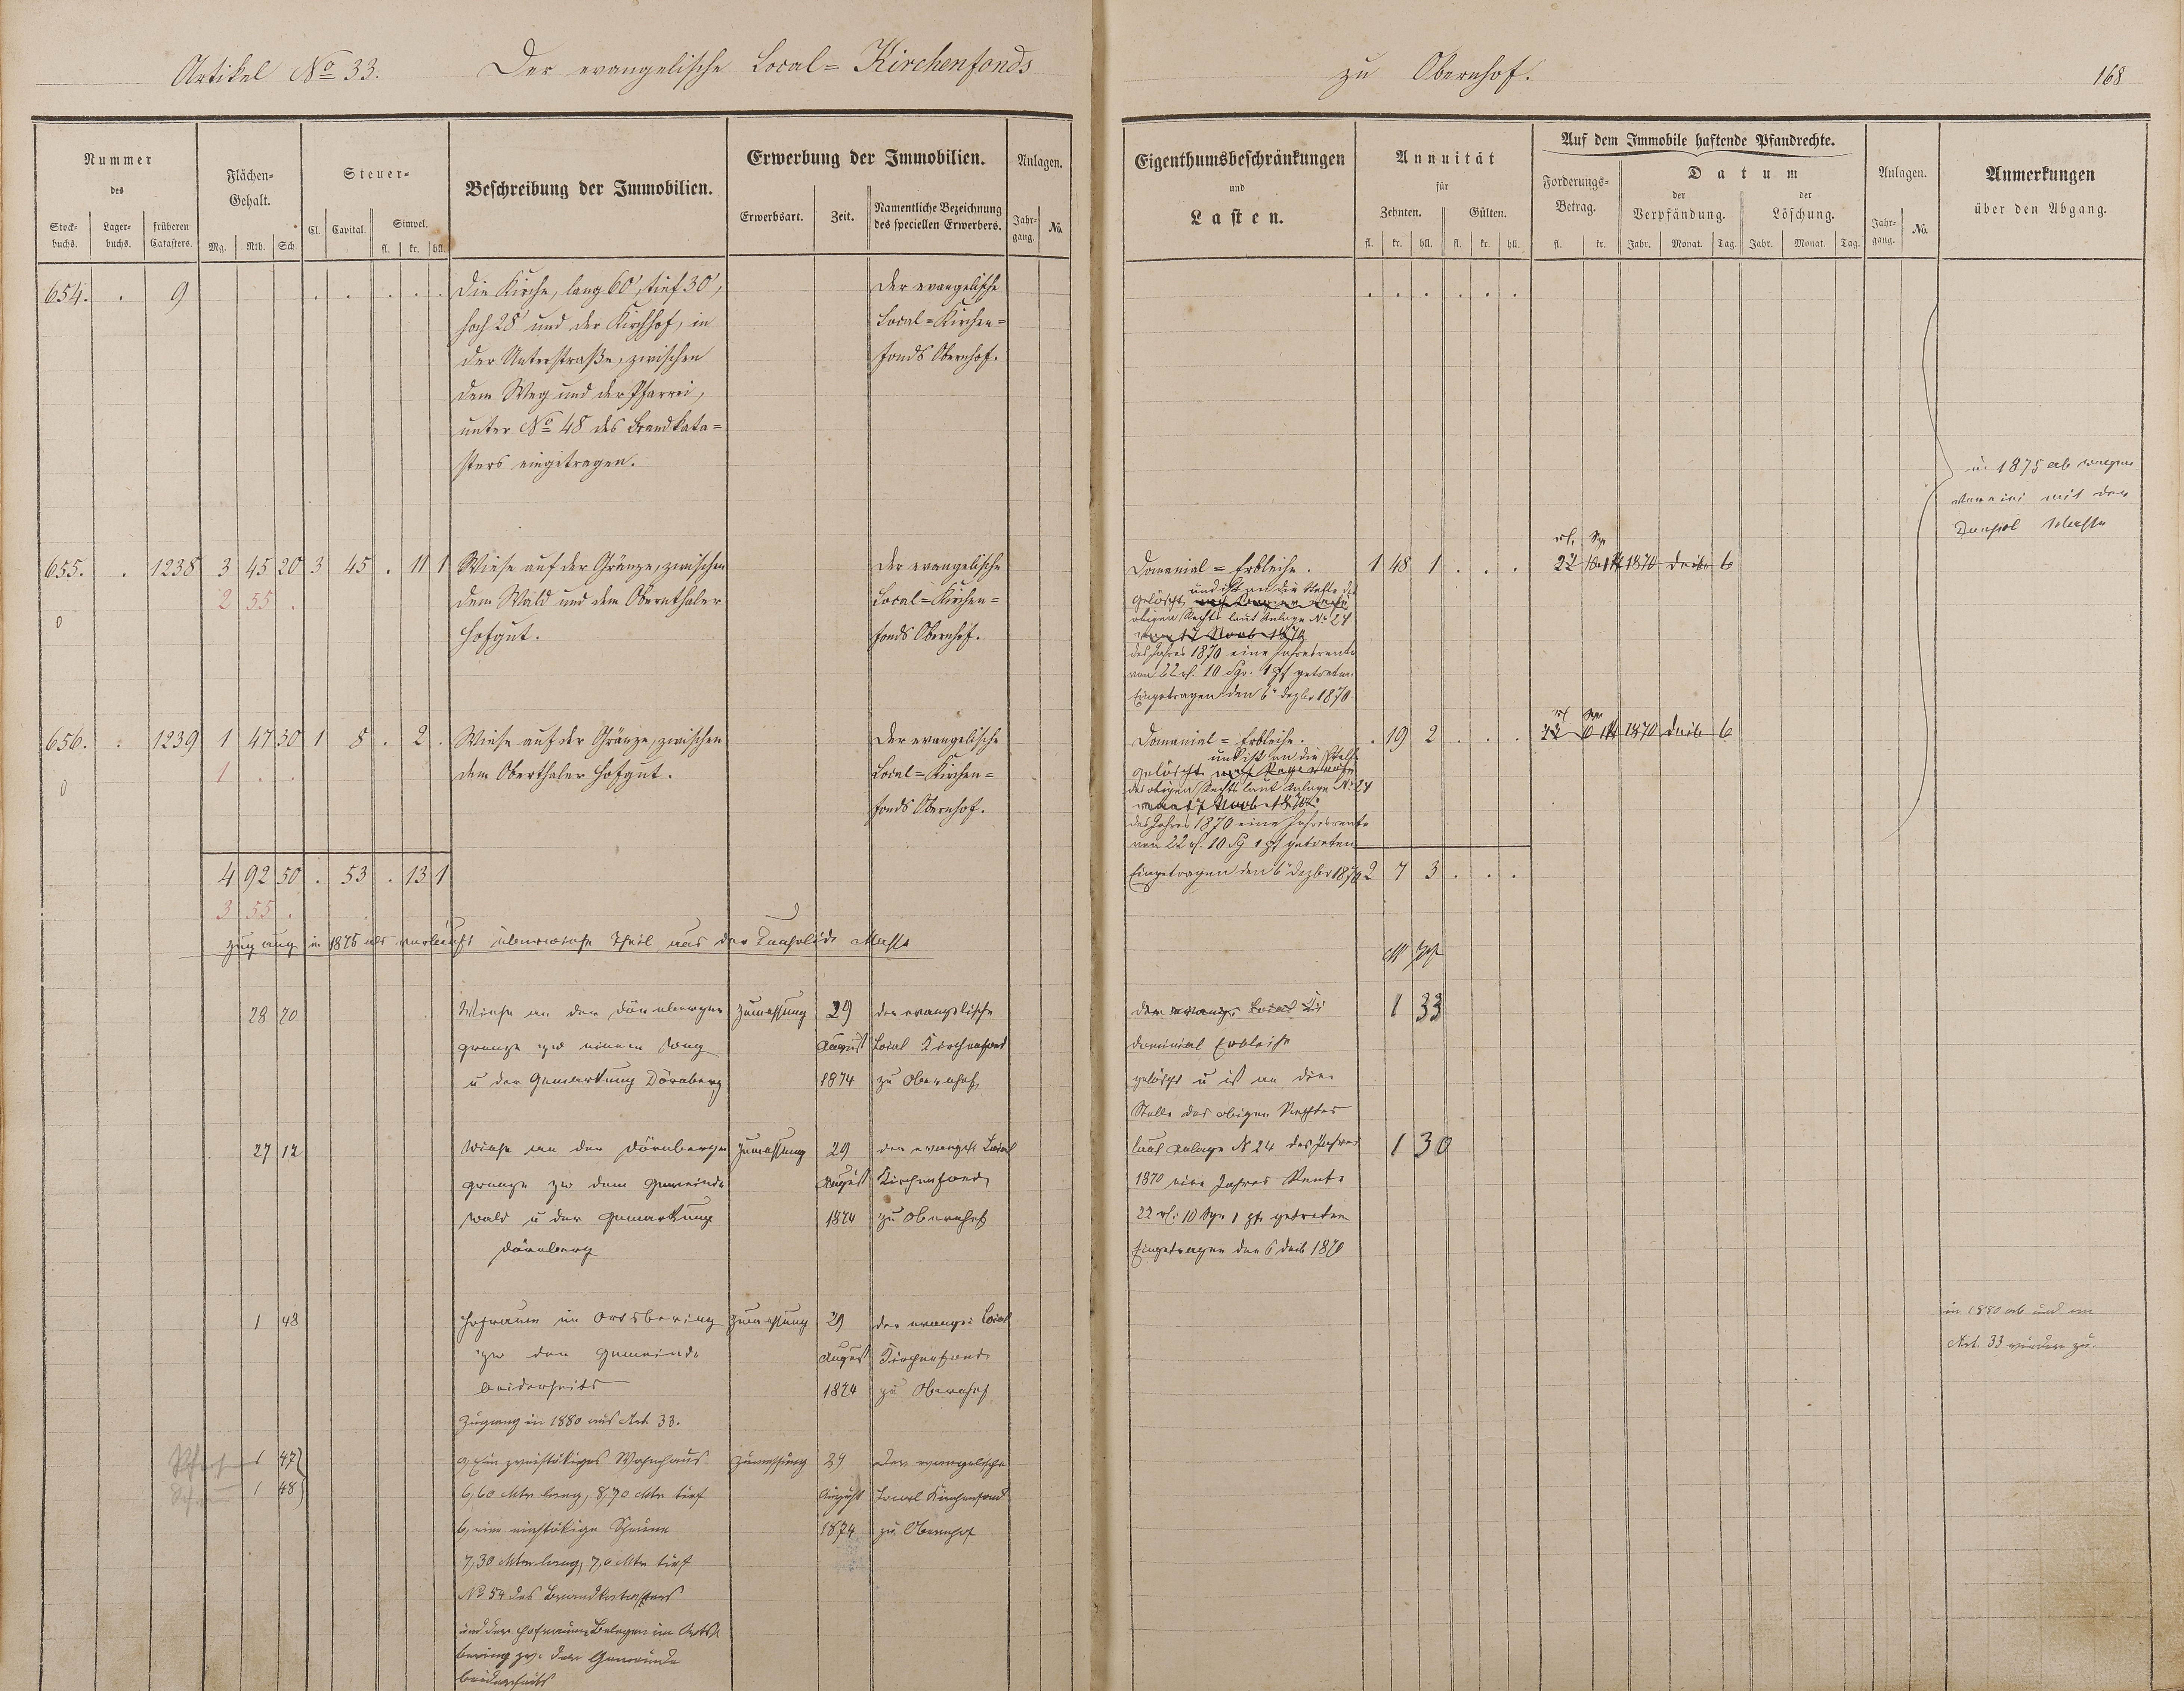 Artikel No 33. Der evangelische Local=Kirchenfonds zu Obernhof. 168
Nummer des
Stock-buchs. Lager-buchs. früheren Catasters.
Flächen-Gehalt.
Mg. Rth. Sch.
Steuer-
Cl. Capital. Simpel.
fl. kr. hll.
Beschreibung der Immobilien.
Erwerbung der Immobilien.
Erwerbsart. Zeit. Namentliche Bezeichnung des speciellen Erwerbers.
Anlagen.
Jahr-gang. No.
Eigenthumsbeschränkungen
und
Lasten.
Annuität
für
Zehnten. Gülten.
fl. kr. hll. fl. kr. hll.
Auf dem Immobile haftende Pfandrechte.
Forderungs-Betrag.
fl. kr.
Datum
der Verpfändung. der Löschung.
Jahr. Monat. Tag. Jahr. Monat. Tag.
Anlagen.
Jahr-gang. No.
Anmerkungen
über den Abgang.
654. . 9 . . . . . Die Kirche, lang 60', tief 30', Der evangelische
hoch 28' und der Kirchhof, in Local=Kirchen=
der Unterstraße, zwischen fonds Obernhof.
dem Weg und der Pfarrei,
unter No 48 des Brandkata=
sters eingetragen.
655. . 1238 3 45 20 3 45 . 11 1 Wiese auf der Gränze, zwischen Der evangelische
2 55 . dem Wald und dem Obernthaler Local=Kirchen=
0 Hofgut. fonds Obernhof.
656. . 1239 1 47 30 1 8 . 2 . Wiese auf der Gränze, zwischen Der evangelische
1 . . dem Oberthaler Hofgut. Local=Kirchen=
0 fonds Obernhof.
4 92 50 . 53 . 13 1
3 55 .
Zugang in 1875 als Theil aus der Masse
28 70 Wiese an der Dörnberger Zumessung 29 der evangelische
grenze zw einem Weg August Local Kirchenfond
u der Gemarkung Dörnberg 1874 zu Obernhof
27 12 Wiese an der Dörnberger Zumessung 29 der evangel. Local
grenze zw dem Gemeinde August Kirchenfond
wald u der Gemarkung 1874 zu Obernhof
Dörnberg
1 48 Hofraum im Ortsbering Zumessung 29 der evang: Local
zw der Gemeinde August Kirchenfond
beiderseits 1874 zu Obernhof
Zugang in 1880 aus Art. 33.
1 47 a, Ein zweistökiges Wohnhaus Zumessung 29 Der evangelische
1 48 6,60 Mtr lang, 8,70 Mtr tief August Local Kirchenfond
b, eine einstökige Scheune 1874 zu Obernhof
7,30 Mtr lang, 7,0 Mtr tief
No 54 des Brandkatasters
und der Hofraum, Belegen im Orts
bering zw. der Gemeinde
beiderseits
. . . . . .
in 1875 ab wegen
mit der
Masse
rl. Sgr
Domanial=Erbleihe. 1 48 1 . . . 22 10 1 1870 Decbr 6
und ist an die Stelle des
gelöscht
obigen Rechts laut Anlage No 24
des Jahres 1870 eine Jahresrente
von 22 rl. 10 Sgr. 1 Pf getreten.
Eingetragen den 6' Dezbr 1870
rl Sgr
Domanial=Erbleihe. . 19 2 . . . 22 10 1 1870 Decb 6
und ist an die Stelle
gelöscht
des obigen Rechts laut Anlage No 24
des Jahres 1870 eine Jahresrente
von 22 rl. 10 Sg 1 Pf getreten
Eingetragen den 6' Dezbr 1870 2 7 3 . . .
M Pf
1 33
Dominial Erbleihe
gelöscht u ist an die
Stelle des obigen Rechtes
laut Anlage N 24 des Jahres 1 30
1870 eine Jahres Rente
22 rl: 10 Sgr 1 pf getreten
Eingetragen den 6 Decb 1870
in 1880 ab und am
Art. 33 wieder zu.